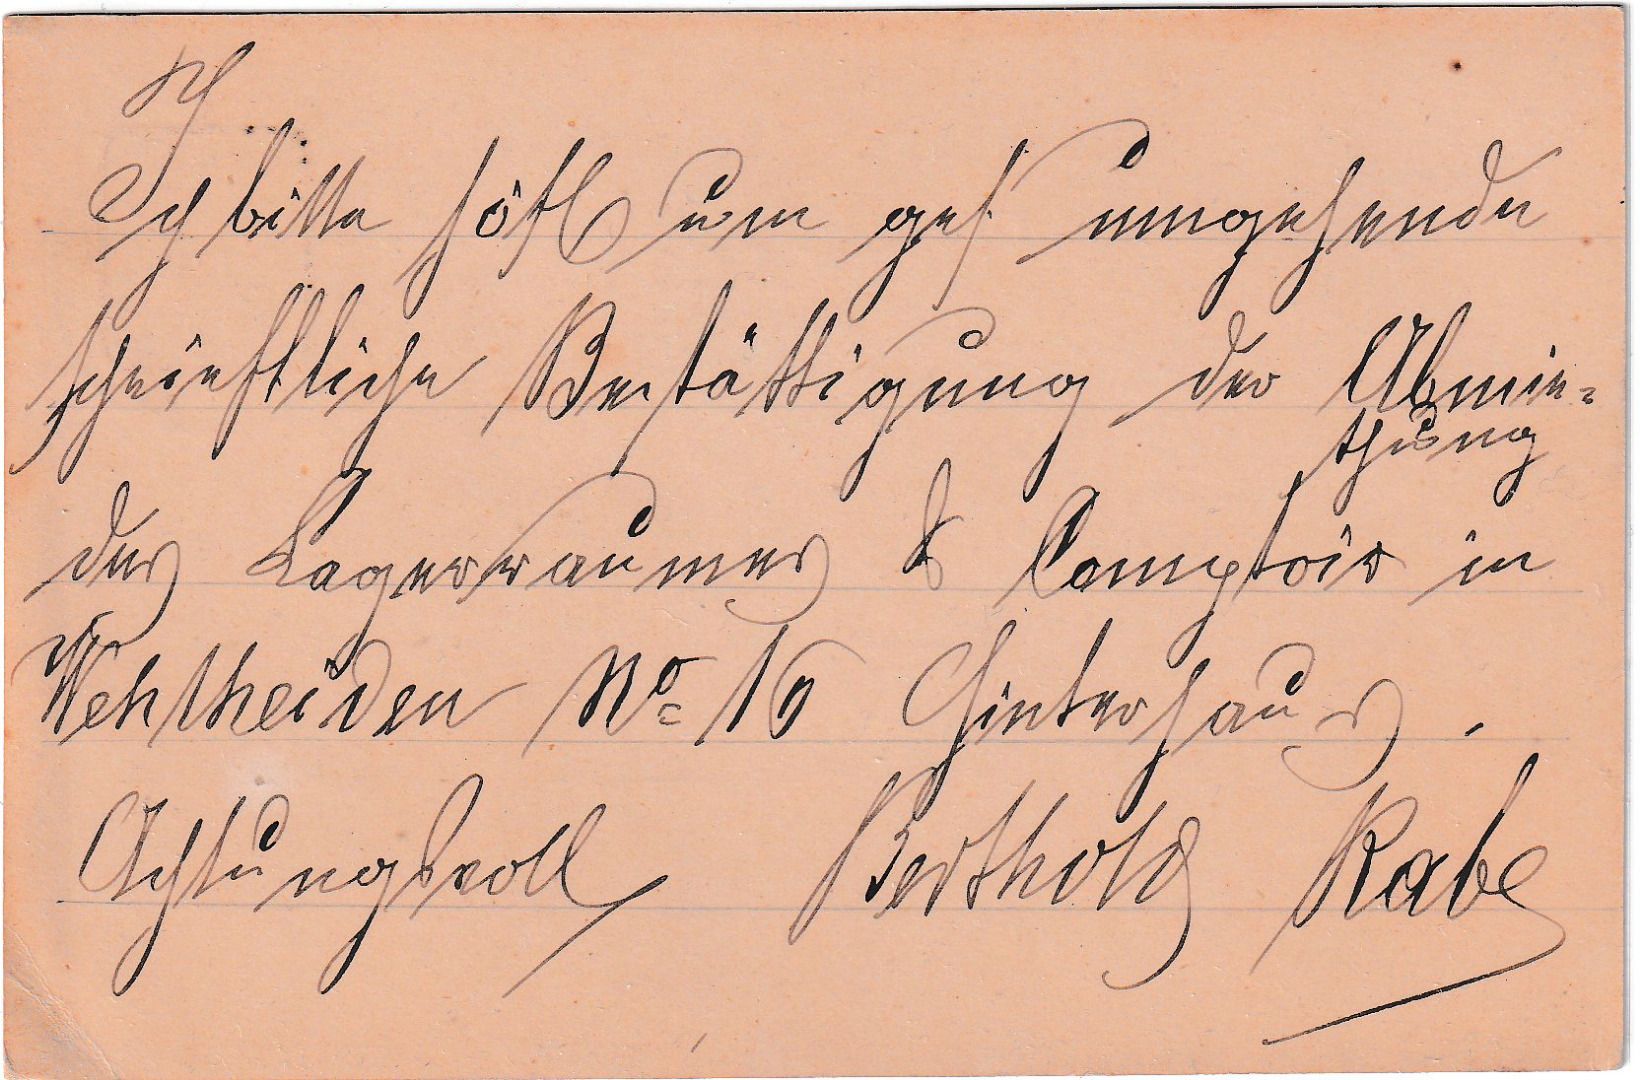 Ich bitte höfl um gef. umgehende
schrieftliche Bestättigung der Abmie=
thung
des Lagerraumes & Comptoir in
Wehlheiden No 16 Hinterhaus.
Achtungsvoll Berthold Rabe